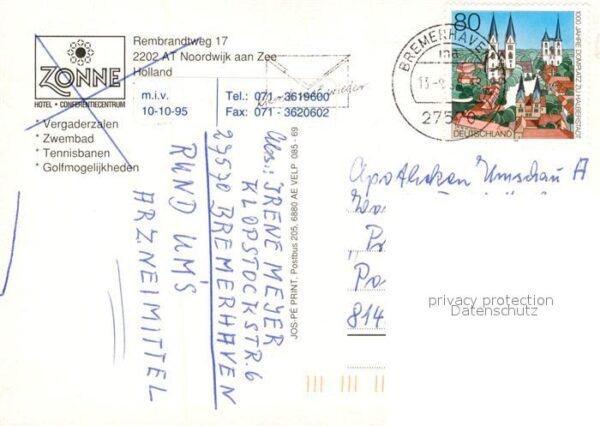 ZONNE
HOTEL • CONFERENTIECENTRUM
* Vergaderzalen
* Zwembad
* Tennisbanen
* Golfmogelijkheden
Rembrandtweg 17
2202 AT Noordwijk aan Zee
Holland
m.i.v.
10-10-95
Tel.: 071 - 3619600
Fax: 071 - 3620602
JOS-PÉ PRINT, Postbus 205, 6880 AE VELP 085 - 69
Abs.: IRENE MEYER
KLOPSTOCKSTR. 6
27570 BREMERHAVEN
RUND UM'S
ARZNEIMITTEL
BREMERHAVEN
27570
80
1000 JAHRE DOMPLATZ ZU HALBERSTADT
DEUTSCHLAND
Apotheken Umschau A
814
privacy protection
Datenschutz